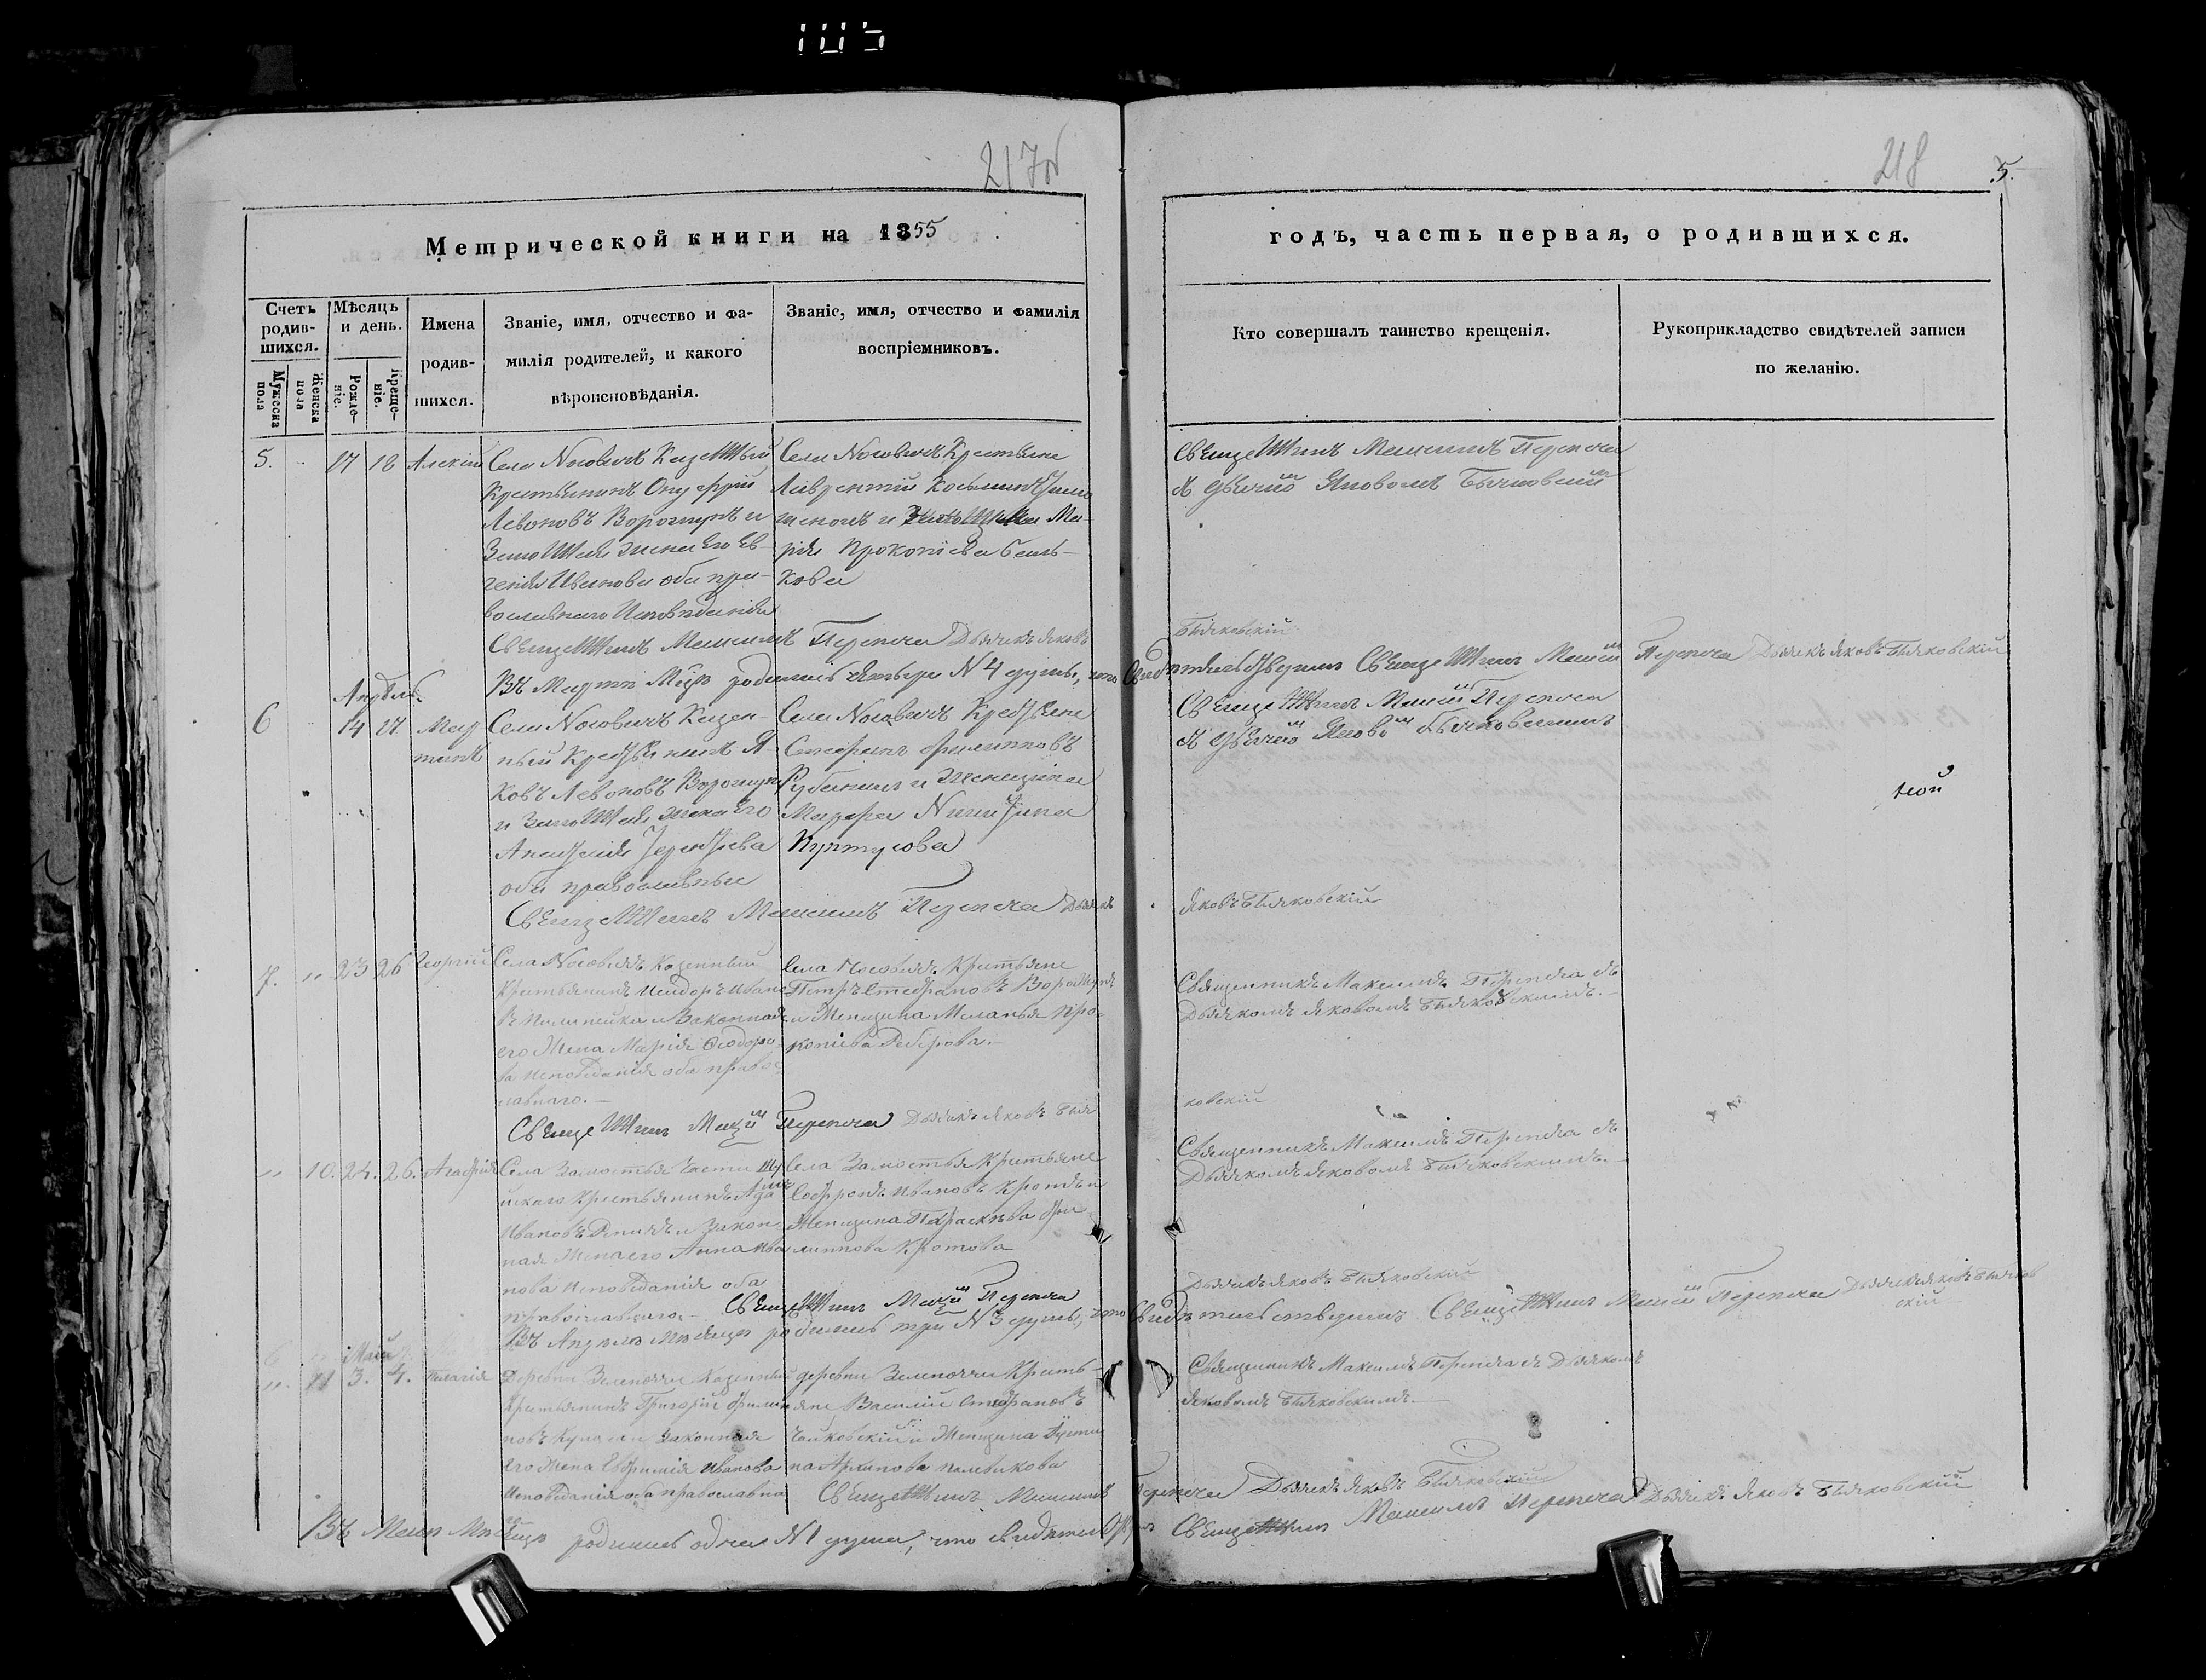 105
217об
218
5.
Метрической книги на 1855
годъ, часть первая, о родившихся.
Счетъ родив-шихся.
Мужеска пола
Женска пола
Мѣсяцъ и день.
Рожде-ніе.
Креще-ніе.
Имена
родив-
шихся.
Званіе, имя, отчество и фа-
милія родителей, и какого
вѣроисповѣданія.
Званіе, имя, отчество и фамилія
воспріемниковъ.
Кто совершалъ таинство крещенія.
Рукоприкладство свидѣтелей записи
по желанію.
5. 17 18 Алексій
Села Носовичъ Казенный
Крестьянинъ Онуфрій
Левоновъ Ворошунъ и
Законная жена его Ев-
генія Иванова оба пра-
вославнаго Исповѣданія
Села Носовичъ Крестьяне
Лаврентій Косьминъ
и Ма-
рія Прокопіева
кова
Священникъ Максимъ Перепеча
съ дьячкомъ Яковомъ Бычковским
Священникъ Максимъ Перепеча Дьячекъ Яковъ
Бычковскій
Въ Мартѣ М-цѣ родились четыре N 4 души, что Свидѣтельствуемъ Священникъ Максим Перепеча Дьячекъ Яковъ Бычковскій
Апрѣль
6 14 17 Мар
тинъ
Села Носовичъ Казен-
ный Крестьянинъ Я-
ковъ Левоновъ Ворошунъ
и Законная жена его
Анастасія Терентіева
оба православные
Села Носовичъ Крестьяне
Стефанъ Филипповъ
и женщина
Марфа Никитина
Священникъ Максим Перепеча
съ дьячком Яковом Бычковскимъ
Священникъ Максимъ Перепеча Дьячекъ
Яковъ Бычковскій
7. " 23 26 Георгій
Села Носовичъ Казенный
Крестьянинъ Исидоръ Ивано
въ Пилипейко и Законная
его Жена Марія Феодоро
ва Исповѣданія оба право
славнаго.—
Села Носовичъ Крестьяне
Петръ Стефановъ Ворошунъ
и Женщина Меланья Про
копіева
Священникъ Максимъ Перепеча съ
Дьячкомъ Яковомъ Бычковскимъ.—
Священникъ Максим Перепеча Дьячекъ Яковъ Быч
ковскій
" 10. 24. 26. Агафія
Села Замостья части
Крестьянинъ
Ивановъ и Закон-
ная Жена его Анна Ива
нова Исповѣданія оба
православнаго.—
Села Замостья Крестьяне
Софронъ Ивановъ Кротъ и
Женщина Параскева Фи
липпова Кротова
Священникъ Максимъ Перепеча съ
Дьячкомъ Яковомъ Бычковскимъ.—
Священникъ Максим Перепеча
Дьячекъ Яковъ Бычковскій
Въ Апрѣлѣ мѣсяцѣ родились три N 3 души, что Свидѣтельствуемъ Священникъ Максим Перепеча Дьячекъ Яковъ Бычков
скій
Май
". 11 3. 4. Пелагія
Деревни Казенный
Крестьянинъ Григорій Филип
повъ и Законная
его Жена Евфимія Иванова
Исповѣданія оба православна
деревни Кресть-
яне Василій Стефановъ
Чайковскій и Женщина Усти
на Архипова
Священникъ Максимъ Перепеча съ Дьячкомъ
Яковомъ Бычковскимъ.—
Священникъ Максимъ Перепеча Дьячекъ Яковъ Бычковскій
Въ Маѣ Мѣсяцѣ родилась одна N 1 душа, что Свидѣтельствуемъ Священникъ Максимъ Перепеча Дьячекъ Яковъ Бычковскій